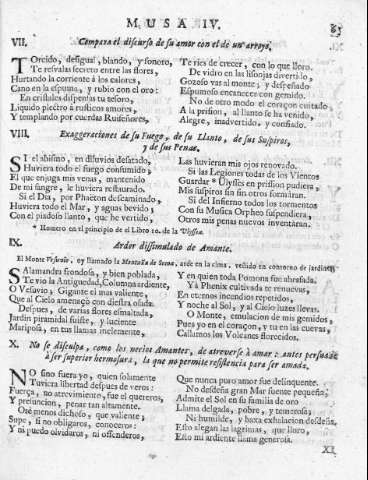 MUSA IV.
83
VII. Compara el discurso de su amor con el de un arroyo.
TOrcido, desigual, blando, y sonoro,
Te resvalas secreto entre las flores,
Hurtando la corriente à los calores,
Cano en la espuma, y rubio con el oro:
En cristales dispensas tu tesoro,
Liquido plectro à rusticos amores,
Y templando por cuerdas Ruiseñores,
Te ries de crecer, con lo que lloro.
De vidro en las lisonjas divertido,
Gozoso vas al monte; y despeñado
Espumoso encaneces con gemido.
No de otro modo el coraçon cuitado
A la prision, al llanto se ha venido,
Alegre, inadvertido, y confiado.
VIII. Exaggeraciones de su Fuego, de su Llanto, de sus Suspiros,
y de sus Penas.
SI el abismo, en diluvios desatado,
Huviera todo el fuego consumido;
El que enjuga mis venas, mantenido
De mi sangre, le huviera restaurado.
Si el Dia, por Phaeton descaminado,
Huviera todo el Mar, y aguas bevido;
Con el piadoso llanto, que he vertido,
Las huvieran mis ojos renovado.
Si las Legiones todas de los Vientos
Guardar * Ulysses en prission pudiera,
Mis suspiros sin fin otros formàran.
Si del Infierno todos los tormentos
Con su Musica Orpheo suspendiera,
Otros mis penas nuevos inventàran.
* Homero en el principio de el Libro 10. de la Ulyssea.
IX. Ardor dissimulado de Amante.
El Monte Vesuvio, oy llamado la Montaña de Soma, arde en la cima, vestido en contorno de jardines.
SAlamandra frondosa, y bien poblada,
Te viò la Antiguedad, Columna ardiente,
O Vesuvio, Gigante el mas valiente,
Que al Cielo amenaçò con diestra osada.
Despues, de varias flores esmaltada,
Jardin piramidal fuiste, y luciente
Mariposa, en tus llamas inclemente,
Y en quien toda Pomona fue abrasada.
Yà Phenix cultivada te renuevas,
En eternos incendios repetidos,
Y noche al Sol, y al Cielo luzes llevas.
O Monte, emulacion de mis gemidos,
Pues yo en el coraçon, y tu en las cuevas,
Callamos los Volcanes florecidos.
X. No se disculpa, como los necios Amantes, de atreverse à amar: antes persuade
à ser superior hermosura, la que no permite resistencia para ser amada.
NO sino fuera yo, quien solamente
Tuviera libertad despues de veros:
Fuerça, no atrevimiento, fue el quereros,
Y presuncion, penar tan altamente.
Osè menos dichoso, que valiente;
Supe, si no obligaros, conoceros:
Y ni puedo olvidaros, ni offenderos,
Que nunca puro amor fue delinquente.
No desdeña gran Mar fuente pequeña;
Admite el Sol en su familia de oro
Llama delgada, pobre, y temerosa;
Ni humilde, y baxa exhalacion desdeña.
Esto alegan las lagrimas, que lloro;
Esto mi ardiente llama generosa.
XI.